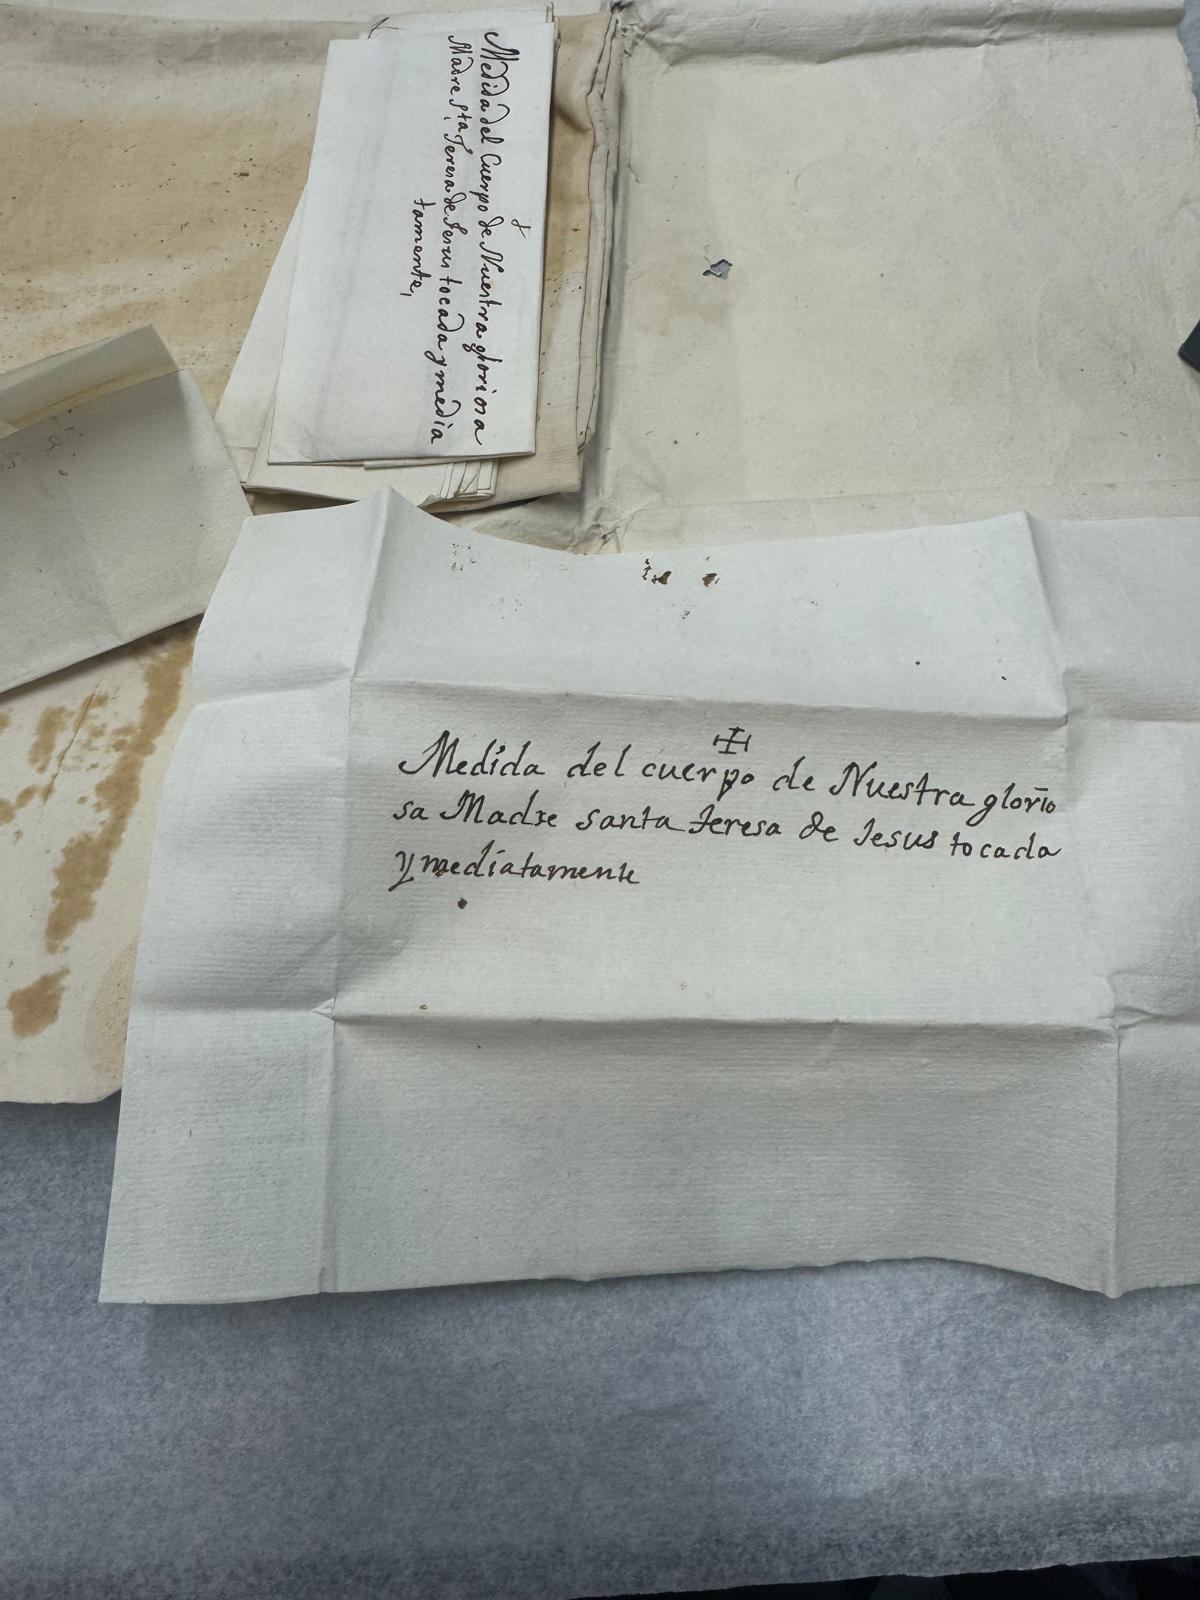 +
Medida del Cuerpo de Nuestra gloriosa
Madre Sta. Teresa de Jesus tocada y media
tamente,
✠
Medida del cuerpo de Nuestra glorio
sa Madre santa teresa de Jesus tocada
ymediatamente